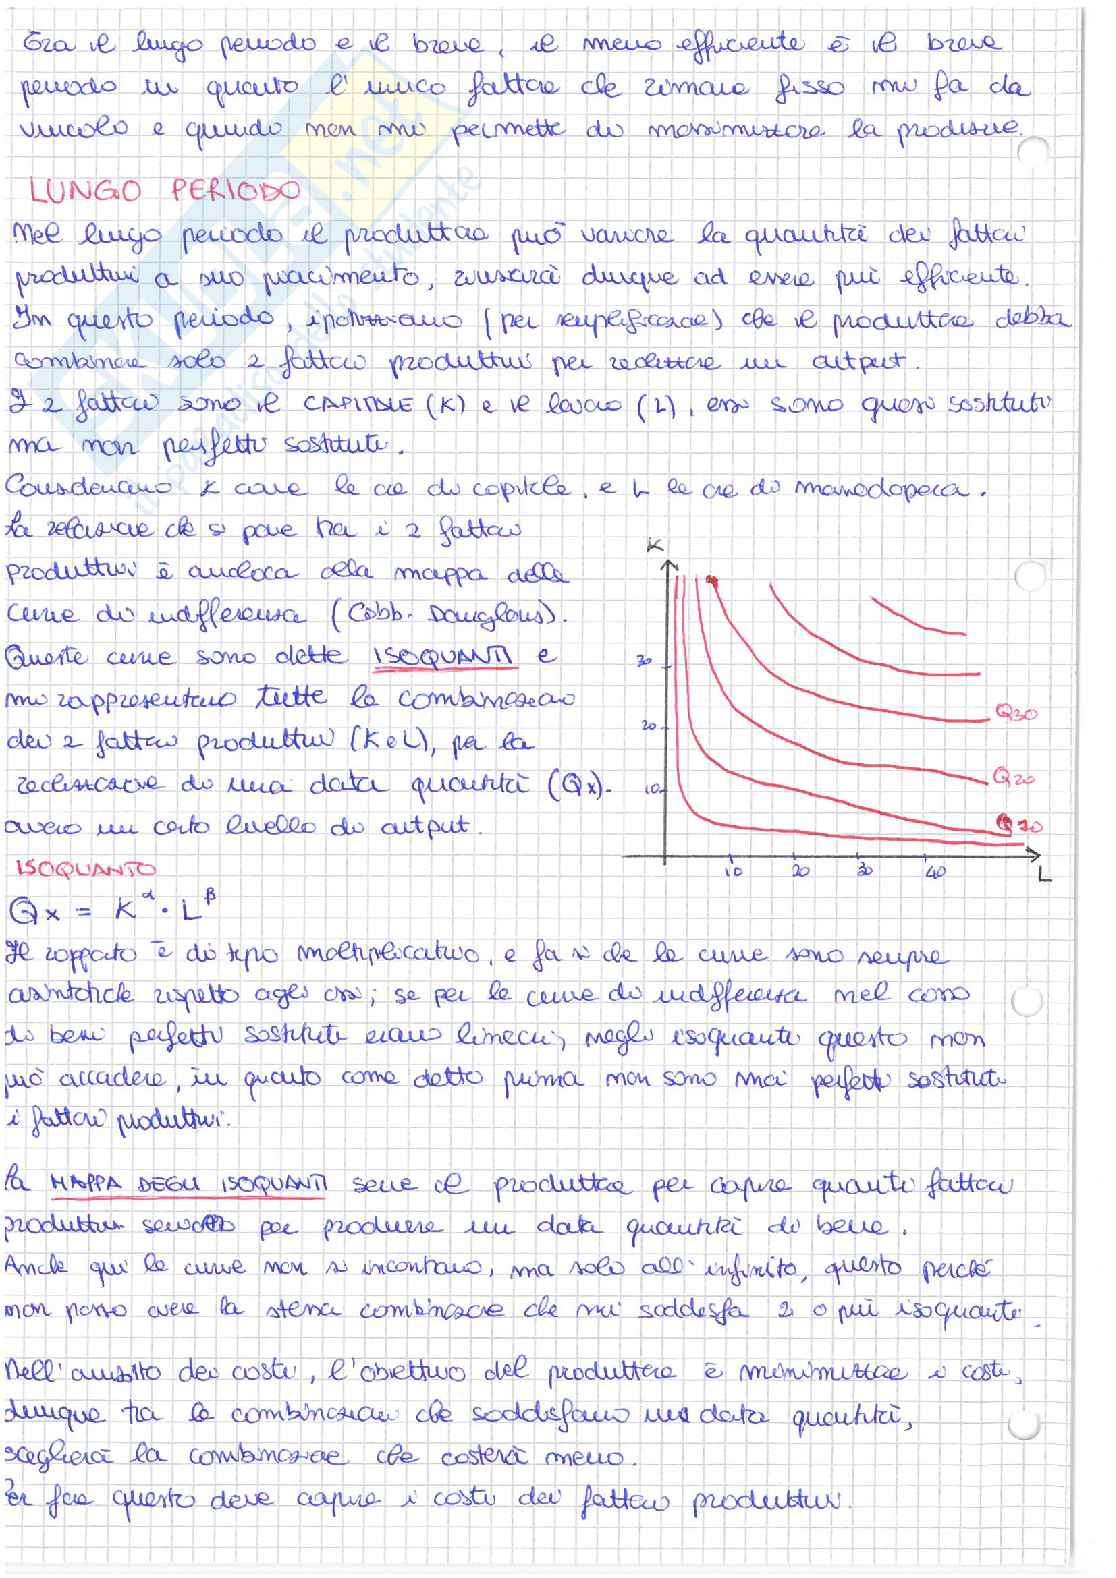 Tra il lungo periodo e il breve, il meno efficiente è il breve
periodo in quanto l'unico fattore che rimane fisso mi fa da
vincolo e quindi non mi permette di massimizzare la produzione.
LUNGO PERIODO
Nel lungo periodo il produttore può variare la quantità dei fattori
produttivi a suo piacimento, riuscirà dunque ad essere più efficiente.
In questo periodo, ipotizziamo (per semplificazione) che il produttore debba
combinare solo 2 fattori produttivi per realizzare un output.
I 2 fattori sono il CAPITALE (K) e il lavoro (L), essi sono quasi sostituti
ma non perfetti sostituti.
Consideriamo K come le ore di capitale, e L le ore di manodopera.
La relazione che si pone tra i 2 fattori
produttivi è analoga alla mappa delle
curve di indifferenza (Cobb-Douglas).
Queste curve sono dette ISOQUANTI e
mi rappresentano tutte le combinazioni
dei 2 fattori produttivi (K e L), per la
realizzazione di una data quantità (Qx).
ovvero un certo livello di output.
K
30
20
10
10
20
30
40
L
Q30
Q20
Q10
ISOQUANTO
Qx = K^α · L^β
Il rapporto è di tipo moltiplicativo, e fa sì che le curve sono sempre
asintotiche rispetto agli assi; se per le curve di indifferenza nel caso
di beni perfetti sostituti erano lineari, negli isoquanti questo non
può accadere, in quanto come detto prima non sono mai perfetti sostituti
i fattori produttivi.
La MAPPA DEGLI ISOQUANTI serve al produttore per capire quanti fattori
produttivi servono per produrre un data quantità di bene.
Anche qui le curve non si incontrano, ma solo all'infinito, questo perché
non posso avere la stessa combinazione che mi soddisfa 2 o più isoquanti.
Nell'ambito dei costi, l'obiettivo del produttore è minimizzare i costi,
dunque tra le combinazioni che soddisfano una data quantità,
sceglierà la combinazione che costerà meno.
Per fare questo deve capire i costi dei fattori produttivi.